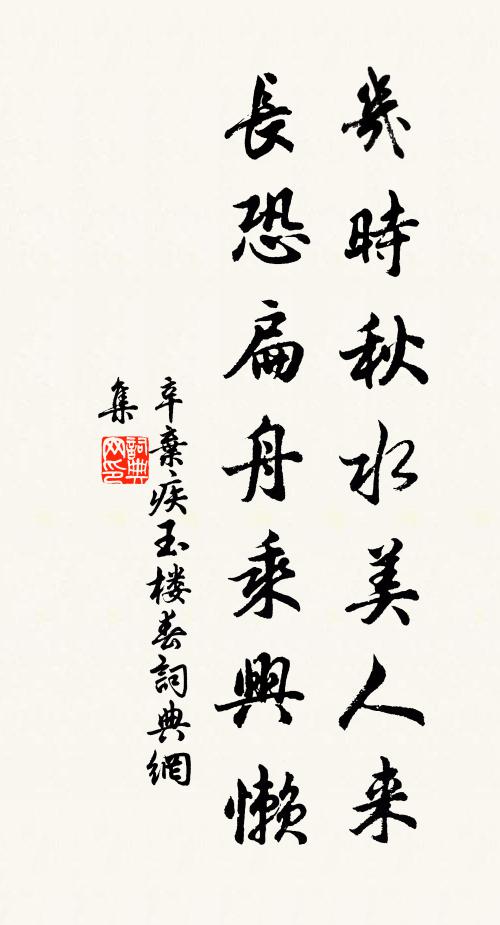 幾時秋水美人来
長恐扁舟乘興懶
辛棄疾玉楼春詞典網
集
詞典网印